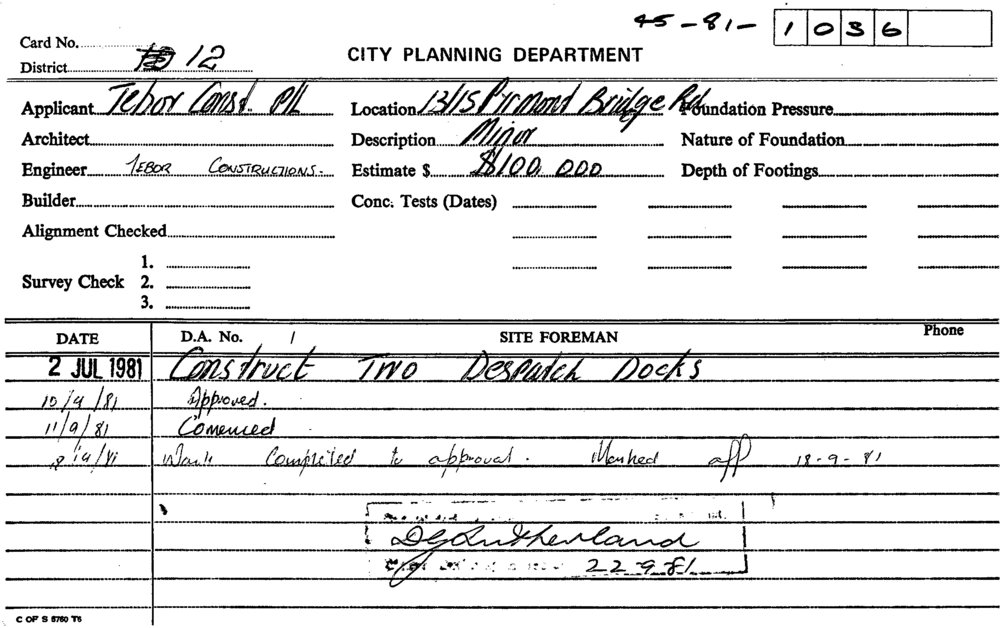 45-81- 1036
Card No.
District 12
CITY PLANNING DEPARTMENT
Applicant Tebor Const. P/L
Location 13/15 Pyrmont Bridge Rd
Foundation Pressure
Architect
Description Minor
Nature of Foundation
Engineer TEBOR CONSTRUCTIONS.
Estimate $ $100,000
Depth of Footings
Builder
Conc. Tests (Dates)
Alignment Checked
Survey Check
1.
2.
3.
DATE D.A. No. / SITE FOREMAN Phone
2 JUL 1981 Construct Two Despatch Docks
10/9/81 Approved.
11/9/81 Comenced
18/9/81 Work Completed to approval. Marked off 18-9-81
DGRutherland
22-9-81
C OF S 8760 T6